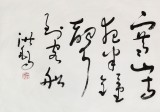 寒山寺
夜半鐘
聲
到客船